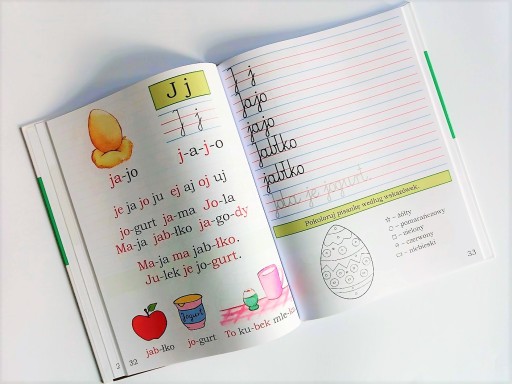 J j
J j
j-a-j-o
ja-jo
je ja jo ju ej aj oj uj
jo-gurt ja-ma Jo-la
Ma-ja jab-łko ja-go-dy
Ma-ja ma jab-łko.
Ju-lek je jo-gurt.
Jogurt
jab-łko jo-gurt To ku-bek mle-ka
2 32
J j
Jajo
jajo
Jabłko
jabłko
je jogurt.
Pokoloruj pisankę według wskazówek.
☆ – żółty
– pomarańczowy
– zielony
– czerwony
– niebieski
33